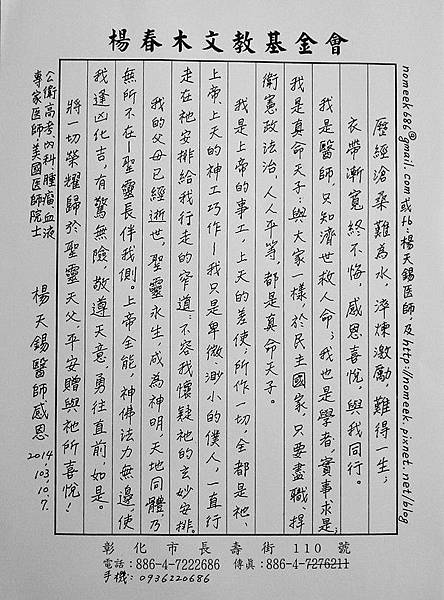 楊春木文教基金會
nomeek686@gmail.com 或 fb:楊天錫医師及 http://nomeek.pixnet.net/blog
歷經滄桑難為水,淬煉激勵難得一生;
衣帶漸寬終不悔,感恩喜悅,與我同行。
我是醫師,只知濟世救人命;我也是學者,實事求是;
我是真命天子:與大家一樣,於民主國家,只要盡職、捍
衛憲政法治,人人平等,都是真命天子。
我是上帝的事工,上天的差使;所作一切,全都是祂、
上帝、上天的神工巧作—我只是卑微渺小的僕人,一直行
走在祂安排給我行走的窄道;不容我懷疑祂的玄妙安排。
我的父母已經逝世,聖靈永生,成為神明,天地同體,乃
無所不在—聖靈長伴我側。上帝全能,神佛法力無邊,使
我逢凶化吉,有驚無險,敬遵天意,勇往直前,如是。
將一切榮耀歸於聖靈天父,平安贈與祂所喜悅!
公衛高考內科腫瘤血液
專家医師美國医師院士
楊天錫醫師感恩 2014,103,10,7.
彰化市長壽街110號
電話:886-4-7222686 傳真:886-4-7276211
手機:0936220686